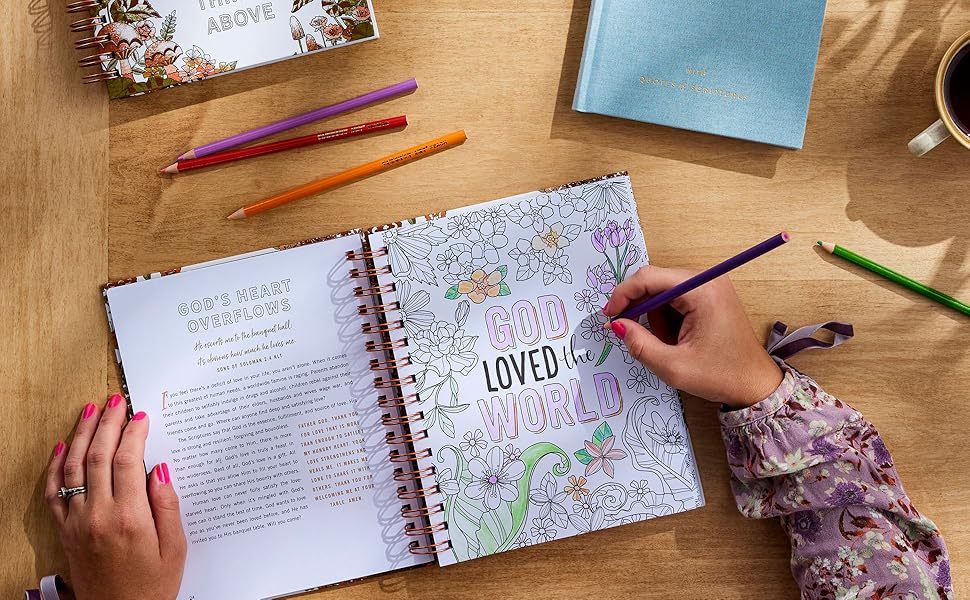 ABOVE
GOD'S HEART
OVERFLOWS
He escorts me to the banquet hall,
it's obvious how much he loves me.
SONG OF SOLOMON 2:4 NLT
If you feel there's a deficit of love in your life, you aren't alone. When it comes
to this greatest of human needs, a worldwide famine is raging. Parents abandon
their children to selfishly indulge in drugs and alcohol, children rebel against their
parents and take advantage of their elders, husbands and wives wage war, and
the famine continues. Where can anyone find deep and satisfying love?
The Scriptures say that God is the essence, fulfillment, and source of love. His
love is strong and resilient, forgiving and boundless.
No matter how many come to him, there is more
than enough for all. God's love is truly a feast in
the wilderness. Best of all, God's love is a gift. All
He asks is that you allow Him to fill your heart to
overflowing so you can share his bounty with others.
Human love can never fully satisfy the love-
starved heart. Only when it's mingled with God's
love can it stand the test of time. God wants to love
you as you've never been loved before, and He has
invited you to His banquet table. Will you come?
FATHER GOD, THANK YOU
FOR LOVE THAT IS MORE
THAN ENOUGH TO SATISFY
MY HUNGRY HEART. YOUR
LOVE STRENGTHENS AND
HEALS ME. IT MAKES ME
LONG TO SHARE IT WITH
OTHERS. THANK YOU FOR
WELCOMING ME TO YOUR
TABLE. AMEN.
GOD
LOVED the
WORLD